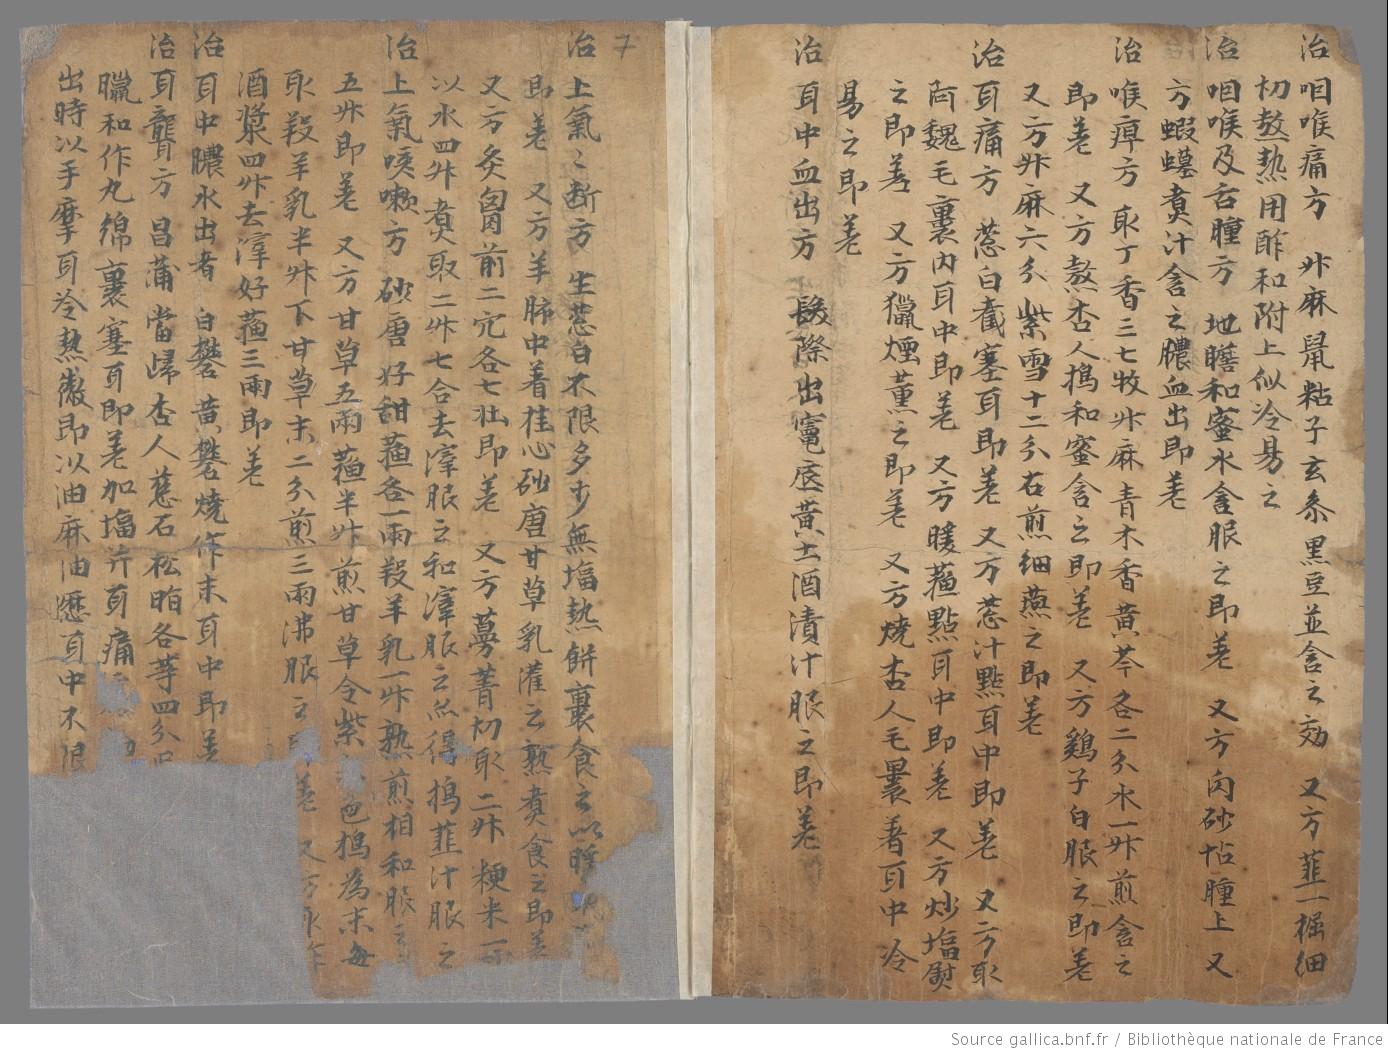 治咽喉痛方 升麻鼠粘子玄参黒豆並含之効 又方韮一握細
切熬熱用酢和附上似冷易之
治咽喉及舌腫方 地膽和蜜水含服之即差 又方肉砂怗腫上 又
方蝦蟇煮汁含之膿血出即差
治喉痺方 取丁香三七牧升麻青木香黄芩各二分水一升煎含之
即差 又方熬杏人搗和蜜含之即差 又方鷄子白服之即差
又方升麻六分紫雪十二分右煎細䜩之即差
治耳痛方 葱白截塞耳即差 又方葱汁點耳中即差 又方取
阿魏毛裹内耳中即差 又方暖葅點耳中即差 又方炒塩熨
之即差 又方獵煙薫之即差 又方燒杏人毛裹著耳中冷
易之即差
治耳中血出方 髮際出竃底黄土酒漬汁服之即差
7
治上氣〻断方 生葱白不限多少無塩熱餅裹食之以
即差 又方羊肺中着桂心砂唐甘草乳灌之熟煮食之即差
又方灸胷前二宂各七壮即差 又方蔓菁切取二升粳米一
以水四升煮取二升七合去滓服之和滓服之亦得搗韮汁服之
治上氣咳嗽方 砂唐好甜葅各一兩羖羊乳一升熟煎相和服之
五升即差 又方甘草五兩葅半升煎甘草令紫 色搗為末毎
取羖羊乳半升下甘草末二分煎三兩沸服之 差 又方取
酒漿四升去滓好葅三兩即差
治耳中膿水出者 白礬黄礬燒作末耳中即差
治耳聾方 昌蒲當歸杏人慈石松脂各等四分
臘和作丸綿裹塞耳即差加塩并耳痛
出時以手摩耳冷熱微即以油麻油瀝耳中不限